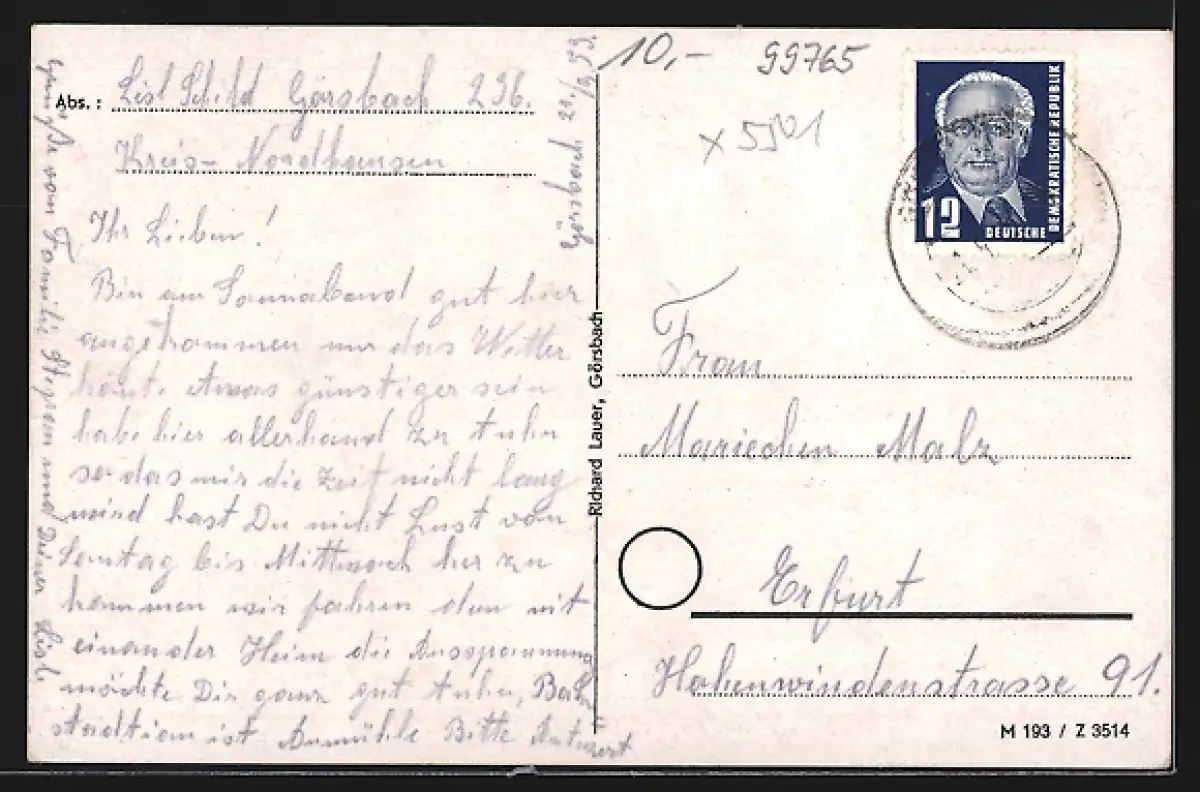 10,- 99765
x 5501
Abs.: Lisl Schild Görsbach 296.
Kreis- Nordhausen
Görsbach 21/9.53.
Ihr Lieben!
Bin am Sonnabend gut hier
angekommen nur das Wetter
könnt. etwas günstiger sein
habe hier allerhand zu tuhn
so das mir die Zeit nicht lang
wird hast Du nicht Lust von
Sonntag bis Mittwoch her zu
kommen wir fahren dan mit
einander Heim die Ausspannung
möchte Dir ganz gut tuhn, Bahn
stadtion ist Aumühle Bitte Antwort
Grüße von Familie und Deiner Lisl.
Richard Lauer, Görsbach
12
DEUTSCHE
DEMOKRATISCHE REPUBLIK
Frau
Mariechen Malz
Erfurt
Hohenwindenstrasse 91.
M 193 / Z 3514